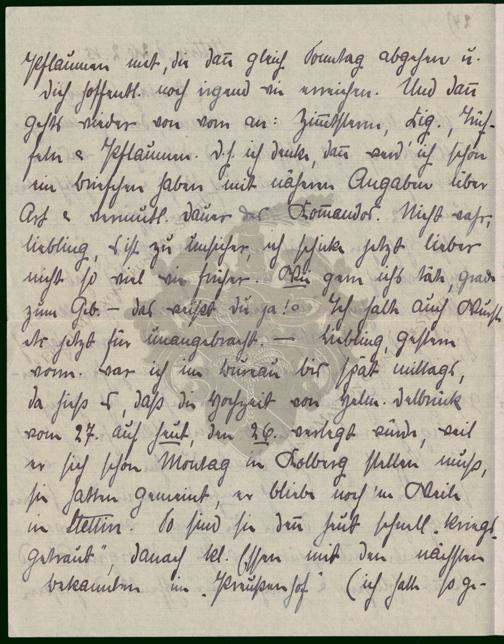 Pflaumen mit, die dann gleich Sonntag abgehen u.
Dich hoffentl. noch irgend wie erreichen. Und dann
gehts wieder von vorn an: Zimtstern, Zig.,
& Pflaumen. d.h. ich denke, dann werd' ich schon
ein Briefchen haben mit näheren Angaben über
Art & vermutl. Dauer des Komandos. Nicht wahr,
Liebling, 's ist zu unsicher, ich schicke jetzt lieber
nicht so viel wie früher. Wie gern ichs täte, grade
zum Geb. – das weißt Du ja! Ich halte auch
etc jetzt für unangebracht. – Liebling, gestern
vorm. war ich im Bureau bis spät mittags,
da hieß es, daß die Hochzeit von Helm. Delbrück
vom 27. auf heut, den 26. verlegt würde, weil
er sich schon Montag in Kolberg stellen muß,
sie hatten gemeint, er bliebe noch 'ne Weile
in Stettin. So sind sie denn heut schnell „kriegs-
getraut", danach kl. Essen mit den nächsten
Bekannten im „Preußenhof" (ich hatte so ge-